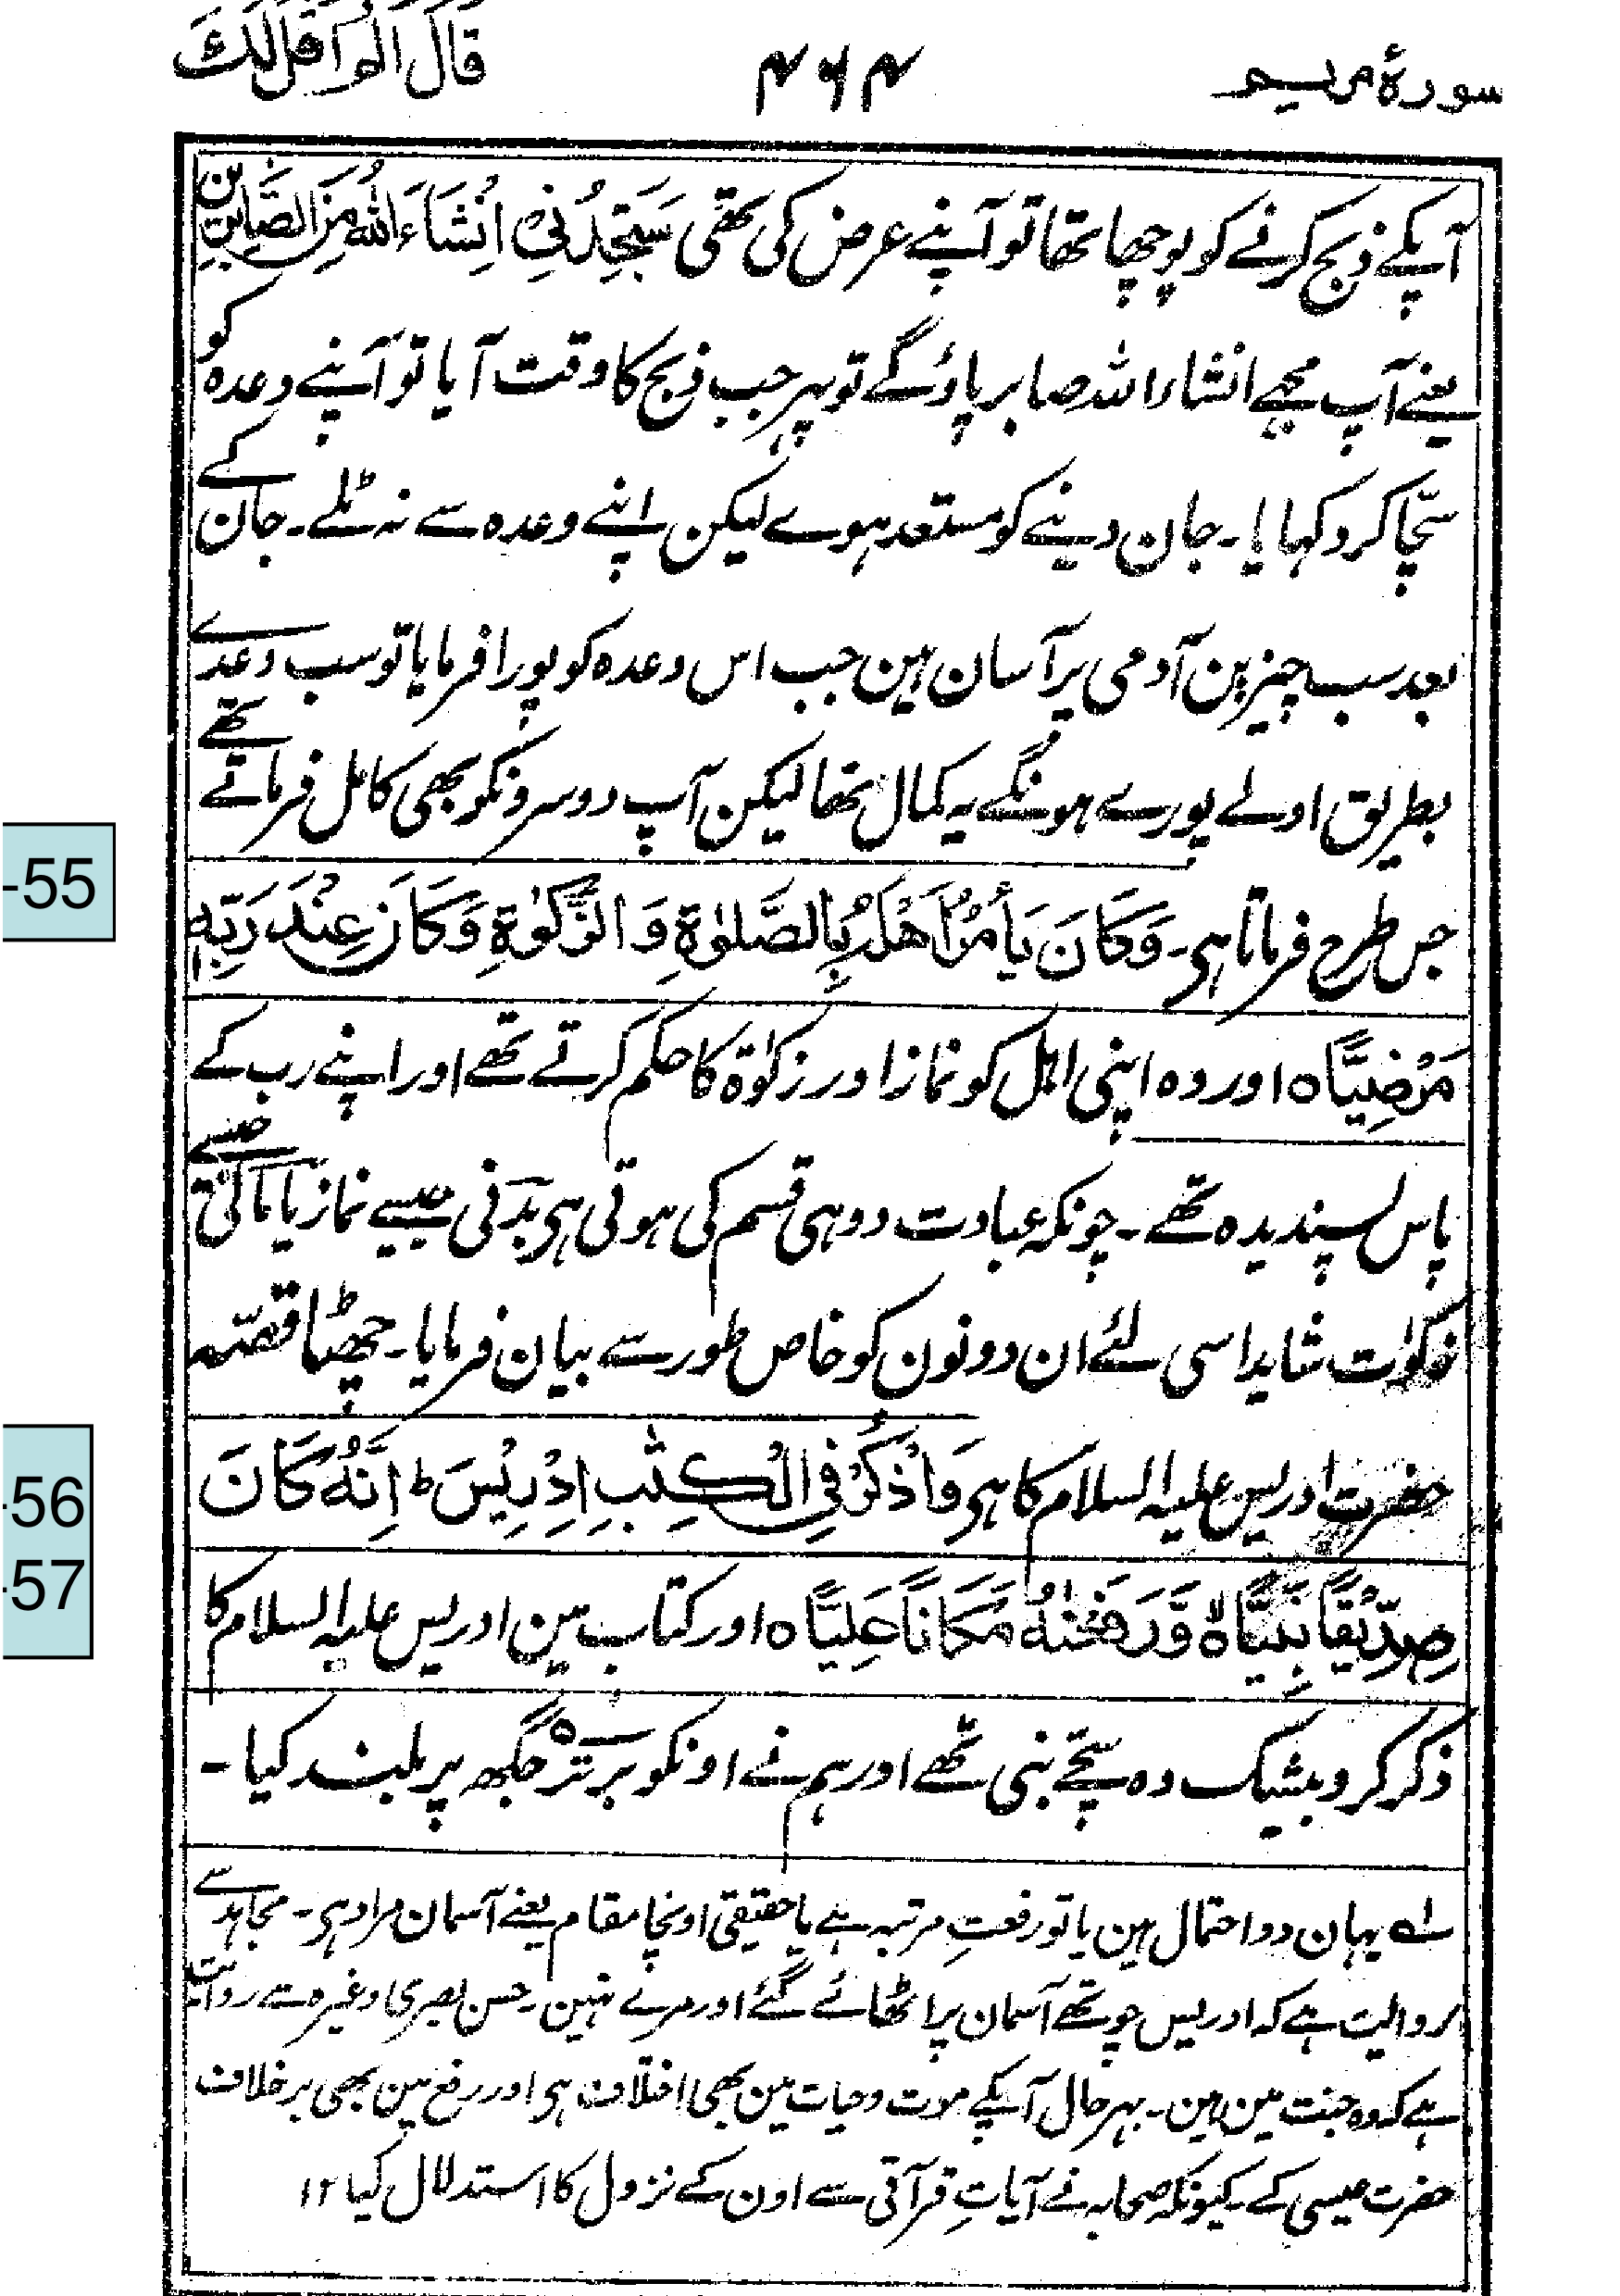 سورۂ مریم
۴۶۴
قال الم اقل لک
آپکے ذبح کرنے کو پوچھا تھا تو آپنے عرض کی تھی سَتَجِدُنِیْ اِنْشَاءَ اللہُ مِنَ الصَّابِرِیْن
یعنے آپ مجھے انشاء اللہ صابر پاؤگے تو پہر جب ذبح کا وقت آیا تو آپنے وعدہ کو
سچّا کر دکہایا۔ جان دینے کو مستعد ہوے لیکن اپنے وعدہ سے نہ ٹلے۔ جان کے
بعد سب چیزین آدمی پر آسان ہین جب اس وعدہ کو پورا فرمایا تو سب وعدے
بطریق اولے پورے ہونگے یہ کمال تھا لیکن آپ دوسرونکو بھی کامل فرماتے تھے
جس طرح فرماتا ہی۔ وَكَانَ يَأْمُرُ اَهْلَهٗ بِالصَّلٰوةِ وَ الزَّكٰوةِ وَكَانَ عِنْدَ رَبِّهٖ
مَرْضِيًّا ہ اور وہ اپنی اہل کو نماز اور زکوٰۃ کا حکم کرتے تھے اور اپنے رب کے
پاس پسندیدہ تھے۔ چونکہ عبادت دو ہی قسم کی ہوتی ہی بدنی جیسے نماز یا مالی جیسے
زکوٰت شاید اسی لئے ان دونون کو خاص طور سے بیان فرمایا۔ چھٹا قصّہ
حضرت ادریس علیہ السلام کا ہی وَاذْكُرْ فِي الْكِتٰبِ اِدْرِيْسَ ط اِنَّهٗ كَانَ
صِدِّيْقًا نَّبِيًّا ہ لا وَّرَفَعْنٰهُ مَكَانًا عَلِيًّا ہ اور کتاب مین ادریس علیہ السلام کا
ذکر کرو بیشک وہ سچّے نبی تھے اور ہم نے اونکو برتر جگہہ پر بلند کیا۔
لہ یہان دو احتمال ہین یا تو رفعتِ مرتبہ ہے یا حقیقی اونچا مقام یعنے آسمان مراد ہی۔ مجاہد سے
روایت ہے کہ ادریس چوتھے آسمان پر اٹھائے گئے اور مرے نہین۔ حسن بصری وغیرہ سے روایت
ہے کہ وہ جنت مین ہین۔ بہر حال آپکے موت و حیات مین بھی اختلاف ہی اور رفع مین بھی برخلاف
حضرت عیسی کے۔ کیونکہ صحابہ نے آیاتِ قرآنی سے اون کے نزول کا استدلال کیا ۱۲
-55
-56
-57